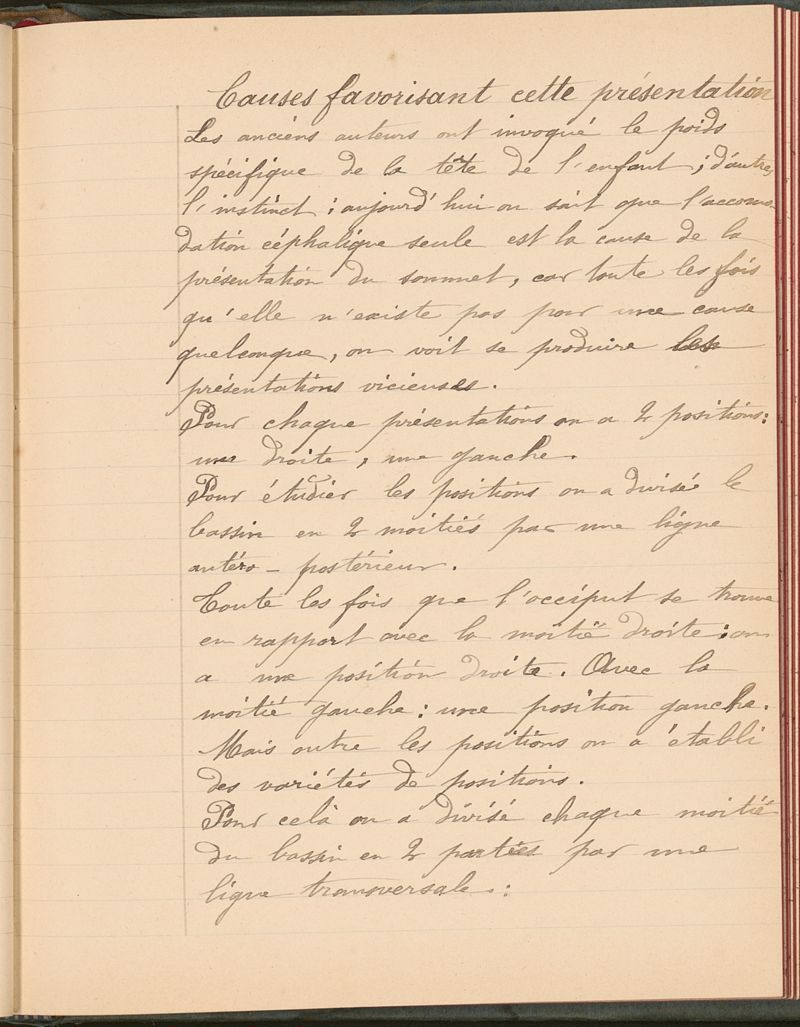 Causes favorisant cette présentation
Les anciens auteurs ont invoqué le poids
spécifique de la tête de l'enfant ; d'autres
l'instinct : aujourd'hui on sait que l'accomo-
dation céphalique seule est la cause de la
présentation du sommet, car toute les fois
qu'elle n'existe pas pour une cause
quelconque, on voit se produire les
présentations vicieuses.
Pour chaque présentations on a 2 positions :
une droite, une gauche.
Pour étudier les positions on a divisé le
bassin en 2 moitiés par une ligne
antéro - postérieur.
Toute les fois que l'occiput se trouve
en rapport avec la moitié droite : on
a une position droite. Avec la
moitié gauche : une position gauche.
Mais outre les positions on a établi
des variétés de positions.
Pour celà on a divisé chaque moitié
du bassin en 2 parties par une
ligne transversale. :